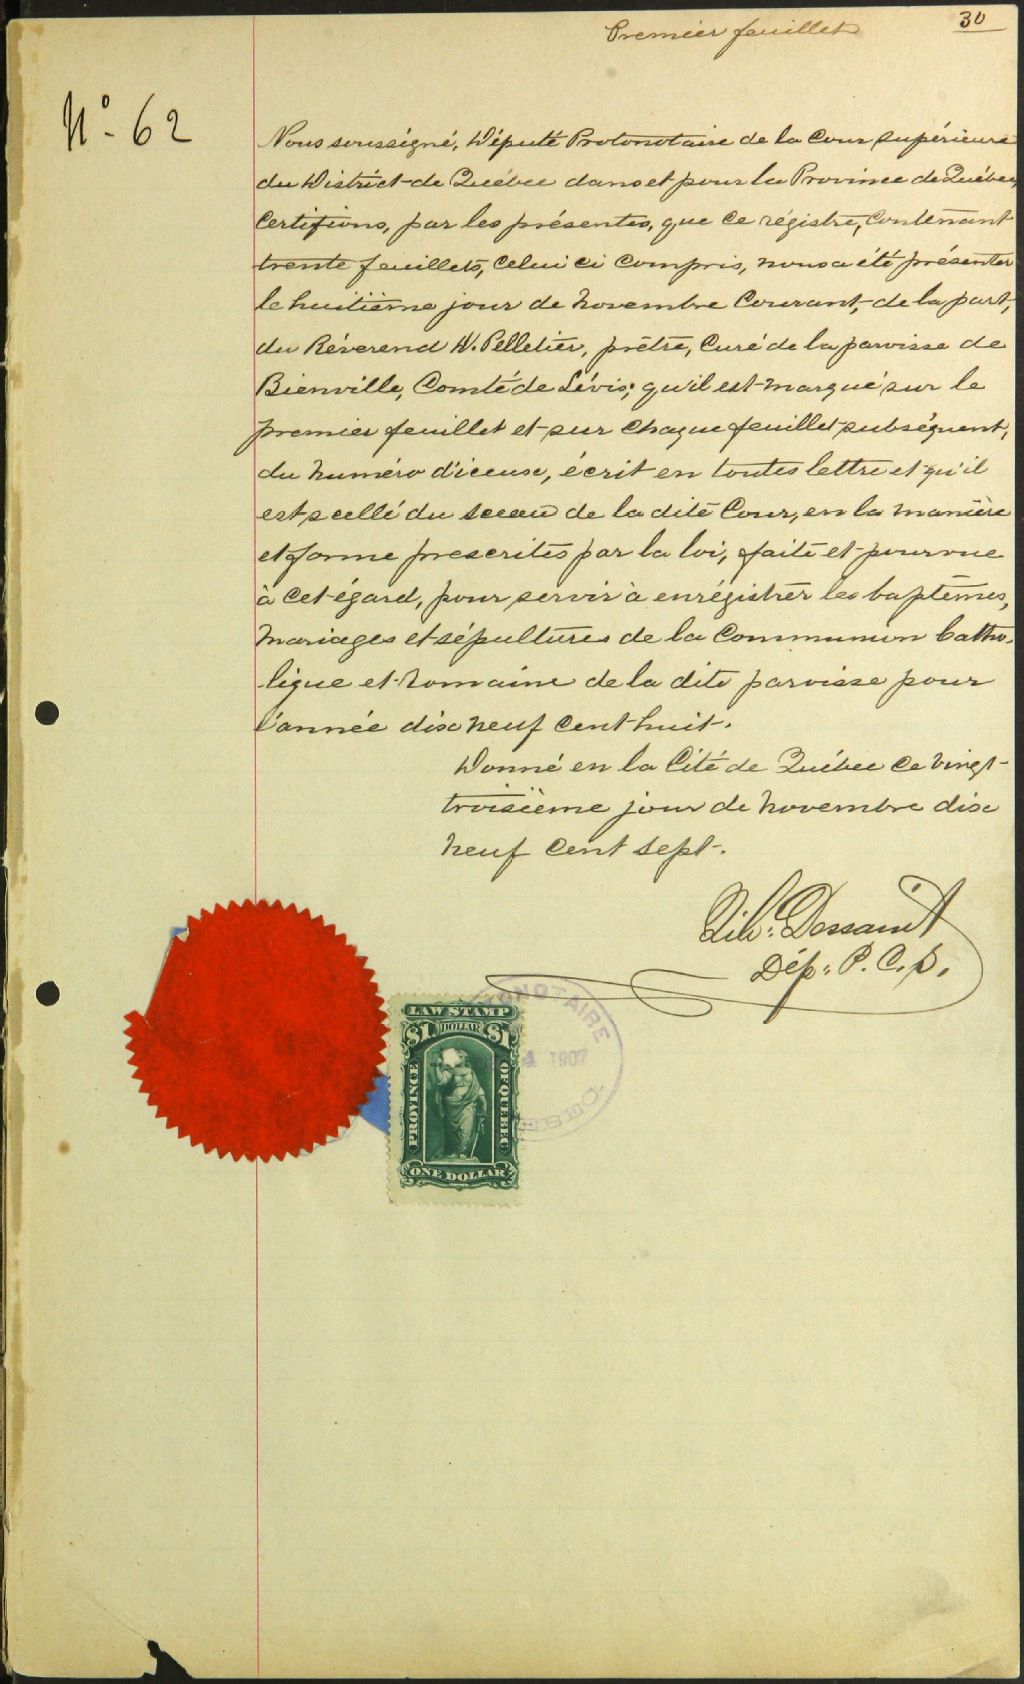 Premier feuillet
30
No 62
Nous soussigné, Député Protonotaire de la Cour supérieure
du District de Québec dans et pour la Province de Québec,
Certifions, par les présentes, que ce régistre, contenant
trente feuillets, celui ci compris, nous a été présenter
le huitième jour de Novembre Courant, de la part,
du Réverend N. Pelletier, prêtre, Curé de la paroisse de
Bienville, Comté de Lévis; qu'il est marqué sur le
premier feuillet et sur chaque feuillet subséquent,
du Numéro d'iceux, écrit en toutes lettre et qu'il
est scellé du sceau de la dite Cour, en la manière
et forme prescrites par la loi, faite et pourvue
à cet égard, pour servir à enrégistrer les baptêmes,
Mariages et sépultures de la Communion Catho-
lique et Romaine de la dite paroisse pour
l'année dix neuf cent huit.
Donné en la Cité de Québec ce vingt-
troisième jour de Novembre dix
neuf cent sept.
Dessaint
Dép. P. C. S.
LAW STAMP
$1 DOLLAR $1
PROVINCE OF QUEBEC
ONE DOLLAR
ONOTAIRE
4 1907